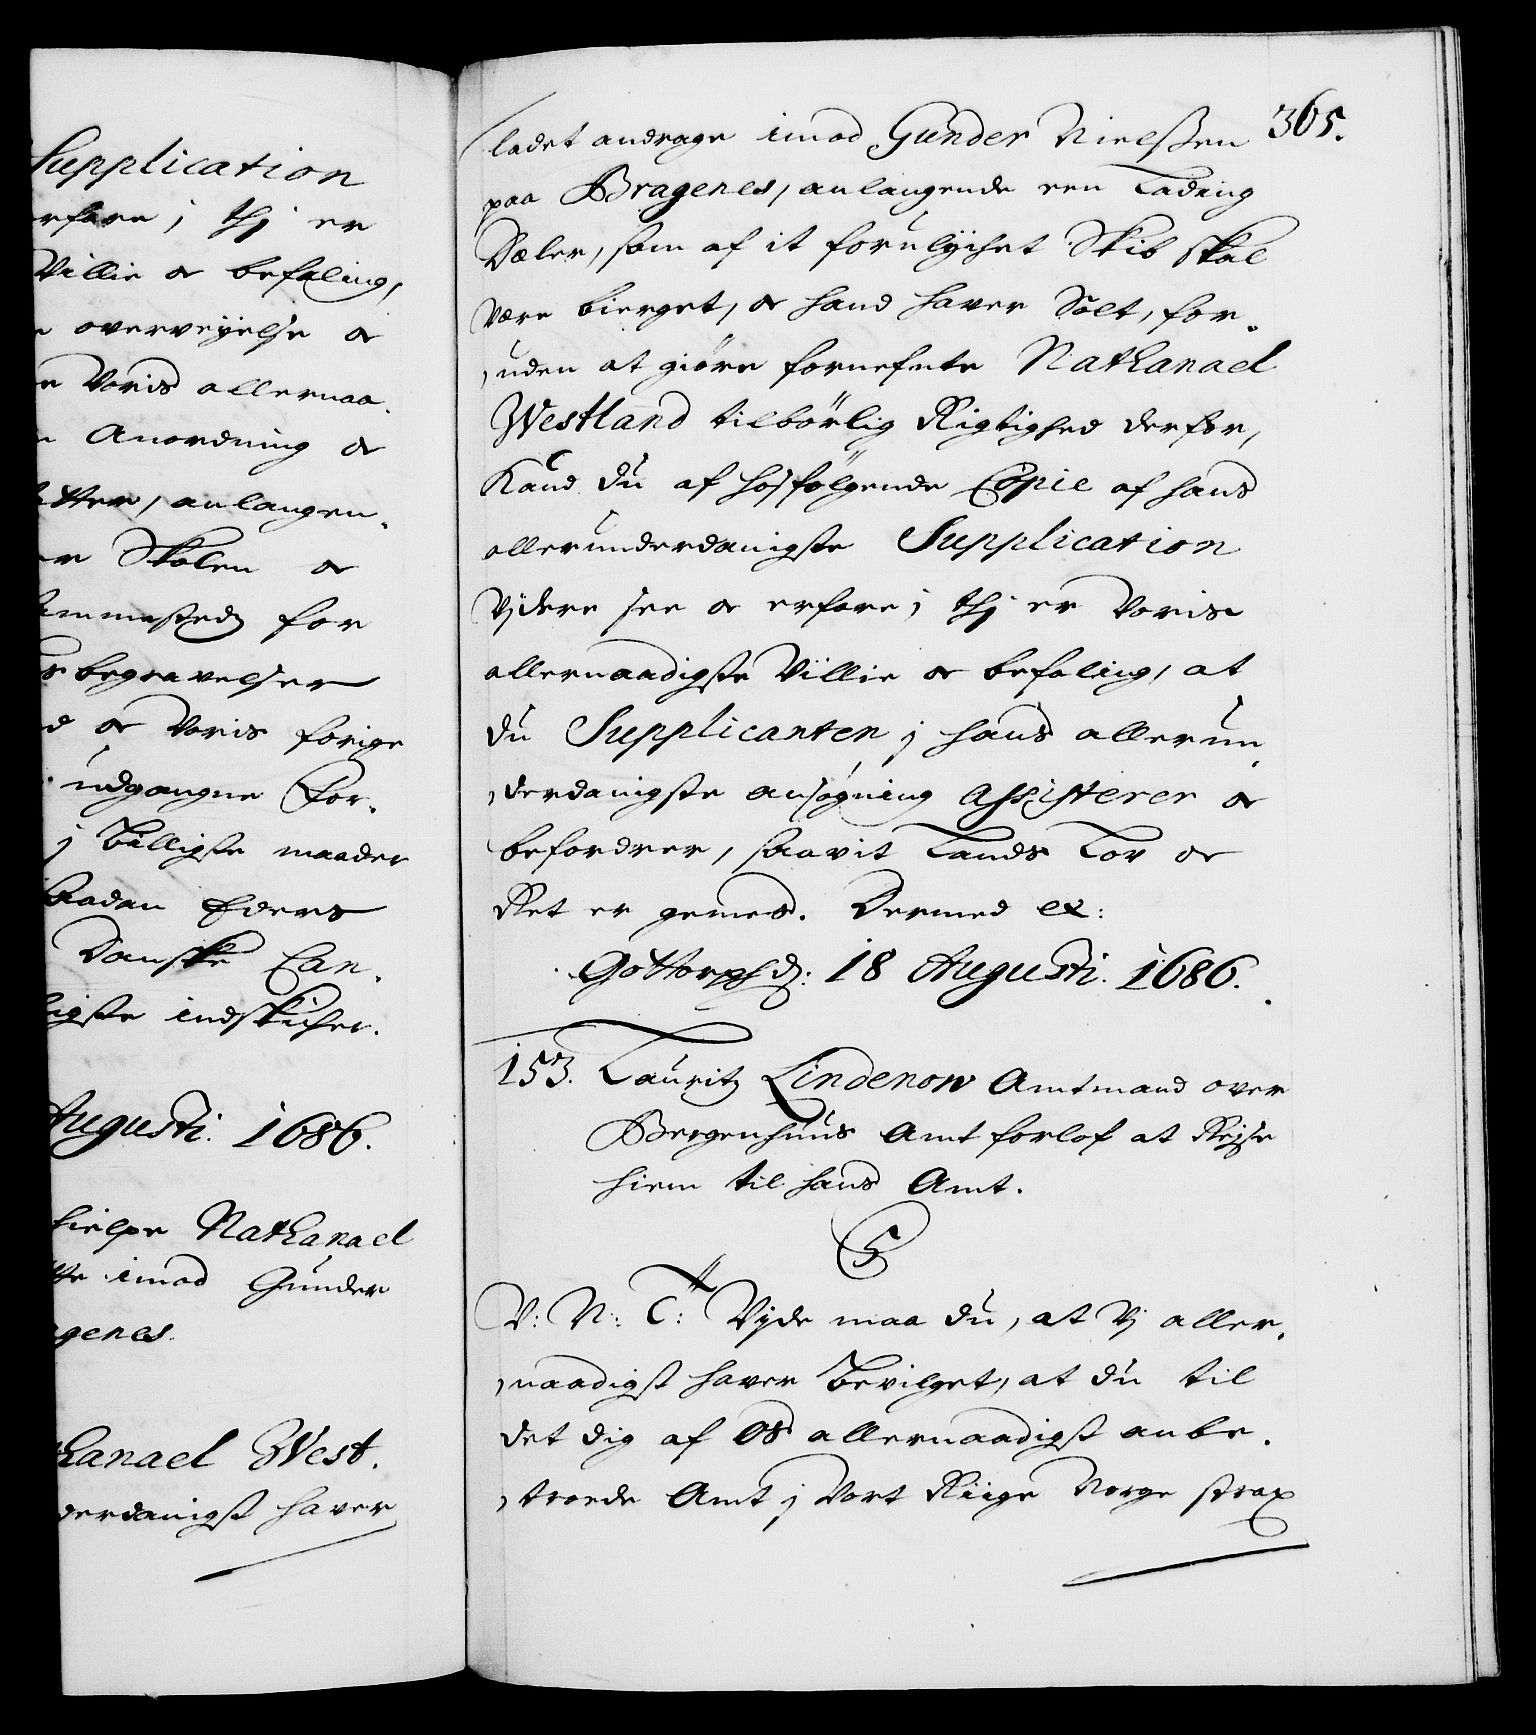 Supplication
erfare; thj er
Villie oc befaling,
overveyelse oc
Voris allernaa-
Anordning oc
anlangen-
Skolen oc
sammesteds for
begravelser
oc Voris forige
udgangne For-
j billigste maader
saadan Eders
Danske Can-
ligste indskicher.
Augusti. 1686.
hielpe Nathanael
imod Gunder
genes.
thanael West-
derdanigst haver
365.
ladet andrage imod Gunder Nielssen
paa Bragenes, anlangende een Ladning
Deeler, som af it forulychet Skib skal
være bierget, oc hand haver Solt, for-
uden at giöre fornefnte Nathanael
Westland tilbörlig Rigtighed derfor,
Kand du af hosfölgende Copie af hans
allerunderdanigste Supplication
Vjdere see oc erfare; thj er Voris
allernaadigste Villie oc befaling, at
du Supplicanten j hans allerun-
derdanigste ansøgning Assisterer oc
befordrer, saavit Lands Lov oc
Ret er gemes. Dermed etc:
Gottorph d: 18 Augusti. 1686.
153. Lauritz Lindenow Amtmand over
Bergenhuus Amt forlof at Rejse
hiem til hans Amt.
C5
V: N: C: Vjde maa du, at Vj aller-
naadigst haver bevilget, at du til
det dig af Os allernaadigst anbe-
troede Amt j Vort Riige Norge strax